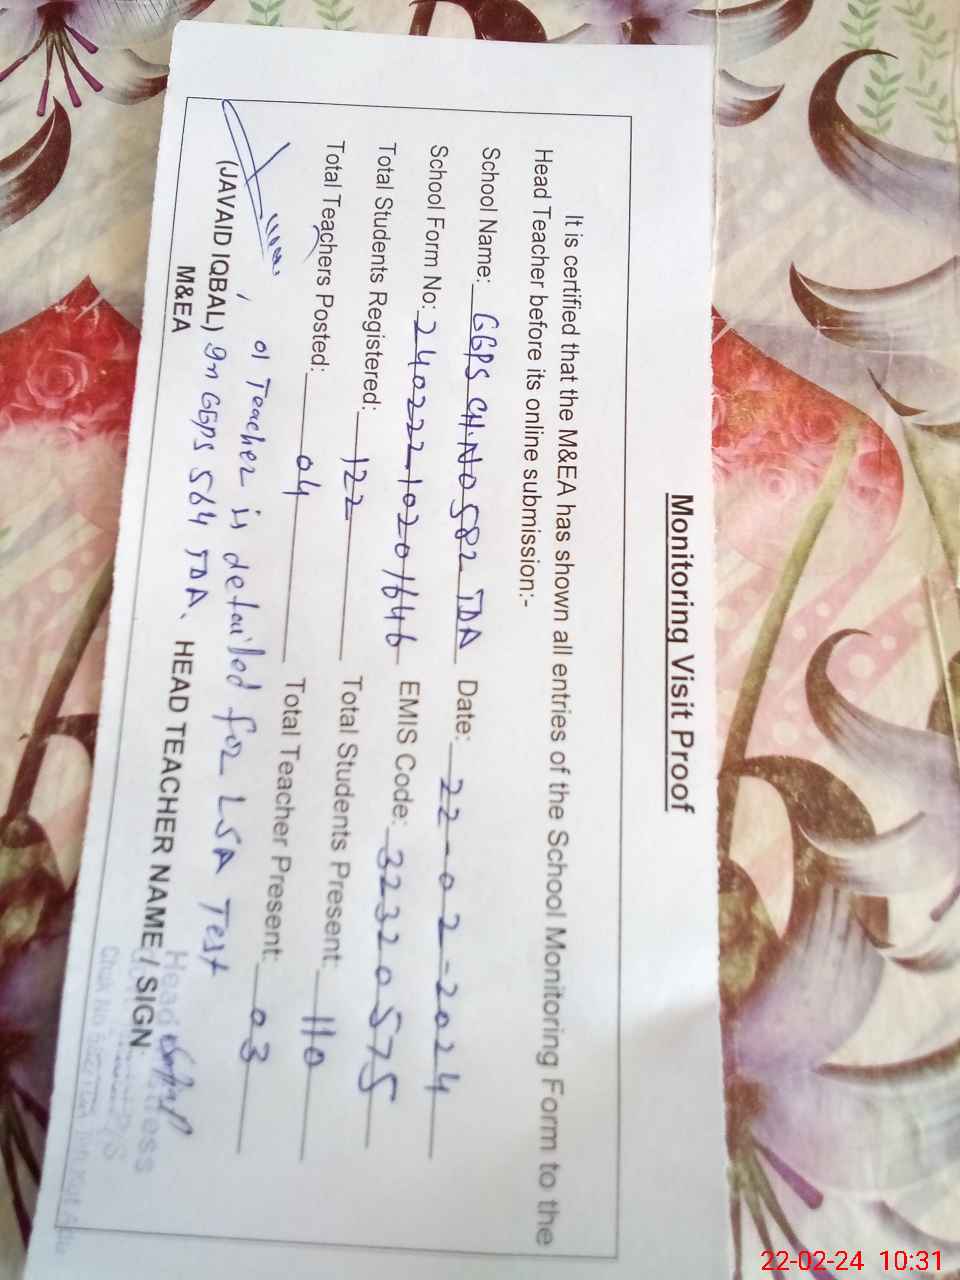 Monitoring Visit Proof
It is certified that the M&EA has shown all entries of the School Monitoring Form to the
Head Teacher before its online submission:-
School Name: GGPS CH.NO 582 TDA Date: 22-02-2024
School Form No: 24022210201646 EMIS Code: 32320575
Total Students Registered: 122 Total Students Present: 110
Total Teachers Posted: 04 Total Teacher Present: 03
01 Teacher is detailed for LSA Test
(JAVAID IQBAL) In GGPS 564 TDA. HEAD TEACHER NAME / SIGN:
M&EA
Head
22-02-24 10:31